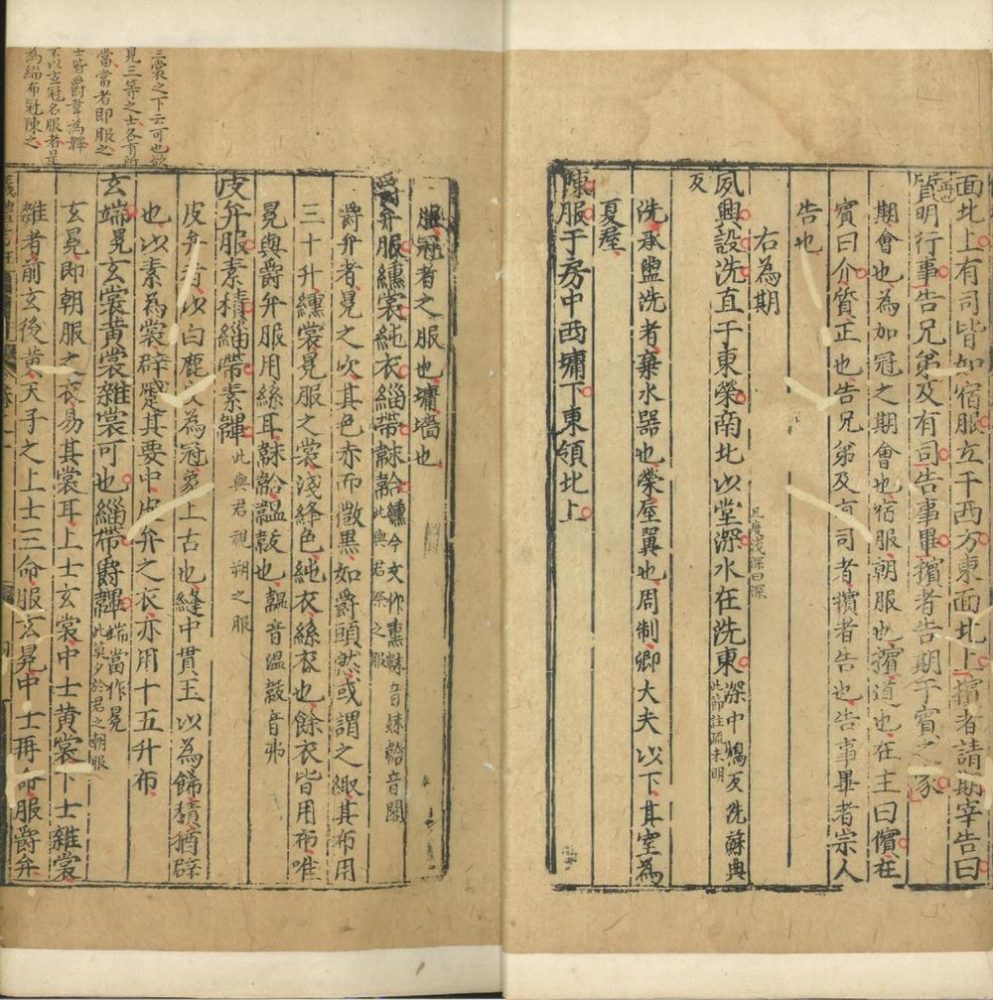 面北上有司皆如宿服立于西方東面北上擯者請期宰告曰
質明行事告兄弟及有司告事畢擯者告期于賓之家
期會也為加冠之期會也宿服朝服也擯道也在主曰儐在
賓曰介質正也告兄弟及有司者擯者告也告事畢者宗人
告也
右為期
凡度淺深曰深
夙興設洗直于東榮南北以堂深水在洗東深中鴆反洗蘇典
此節註疏未明
反
洗承盥洗者棄水器也榮屋翼也周制卿大夫以下其室為
夏屋
陳服于房中西墉下東領北上
服冠者之服也墉墻也
爵弁服纁裳純衣緇帶韎韐纁今文作熏韎音妹韐音閤
此與君祭之服
爵弁者冕之次其色赤而微黑如爵頭然或謂之緅其布用
三十升纁裳冕服之裳淺絳色純衣絲衣也餘衣皆用布唯
冕與爵弁服用絲耳韎韐韞韍也韞音溫韍音弗
皮弁服素積緇帶素韠
此與君視朔之服
皮弁者以白鹿皮為冠象上古也縫中貫玉以為餙積猶辟
也以素為裳辟蹙其要中皮弁之衣亦用十五升布
玄端冕玄裳黃裳雜裳可也緇帶爵韠端當作冕
此莫夕於君之朝服
玄冕即朝服之衣易其裳耳上士玄裳中士黃裳下士雜裳
雜者前玄後黃天子之上士三命服玄冕中士再命服爵弁
三裳之下云可也欲
見三等之士各有所
當當者即服之
士皆爵韋為韠
不以玄冠名服者是
為緇布冠陳之